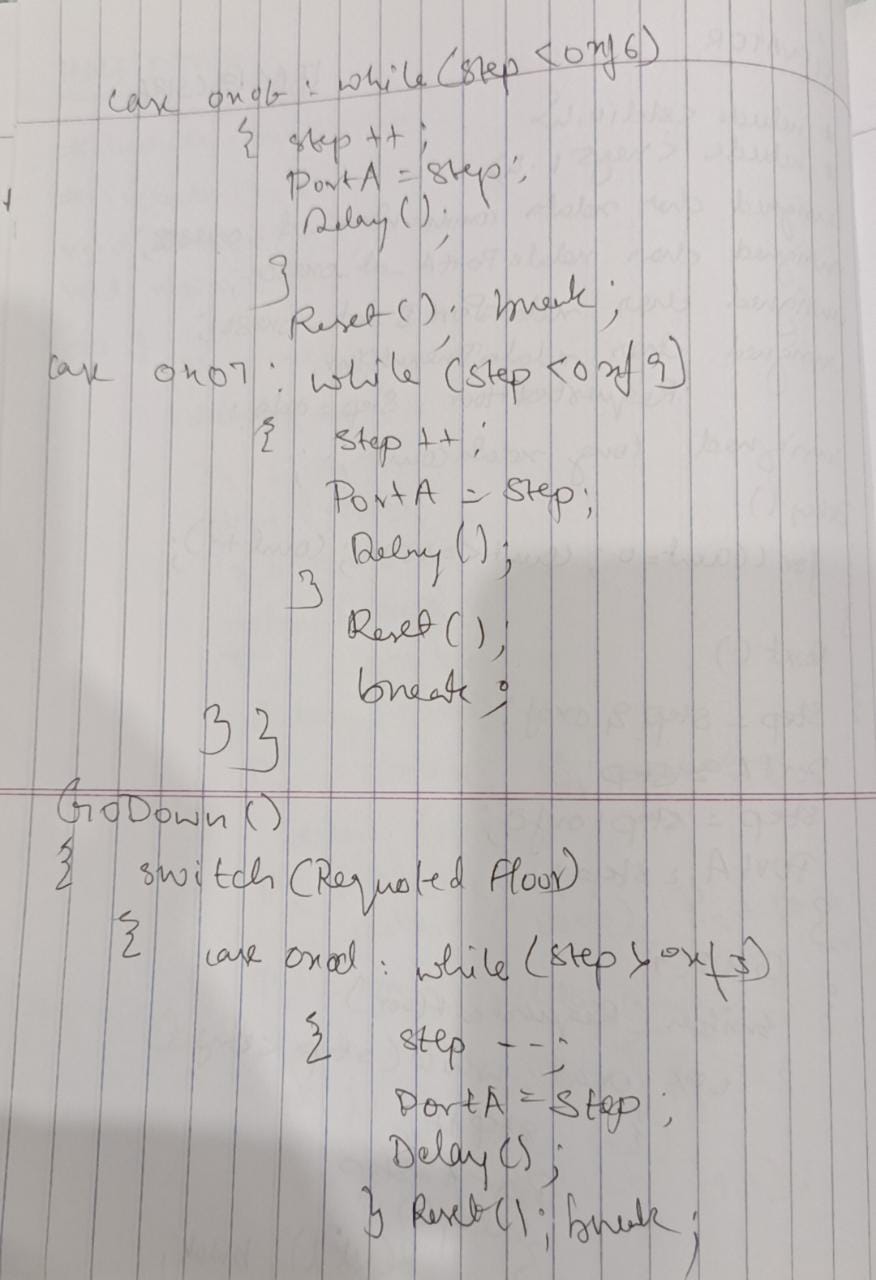 case 0x0b : while (step < 0xf6)
{ step ++ ;
PortA = step ;
Delay () ;
}
Reset () ; break ;
case 0x07 : while (step < 0xf9)
{ step ++ ;
PortA = step ;
Delay () ;
}
Reset () ;
break ;
} }
GoDown ()
{ switch (Requsted Floor)
{ case 0x0d : while (step > 0xf3)
{ step -- ;
PortA = Step ;
Delay () ;
} Reset () ; break ;